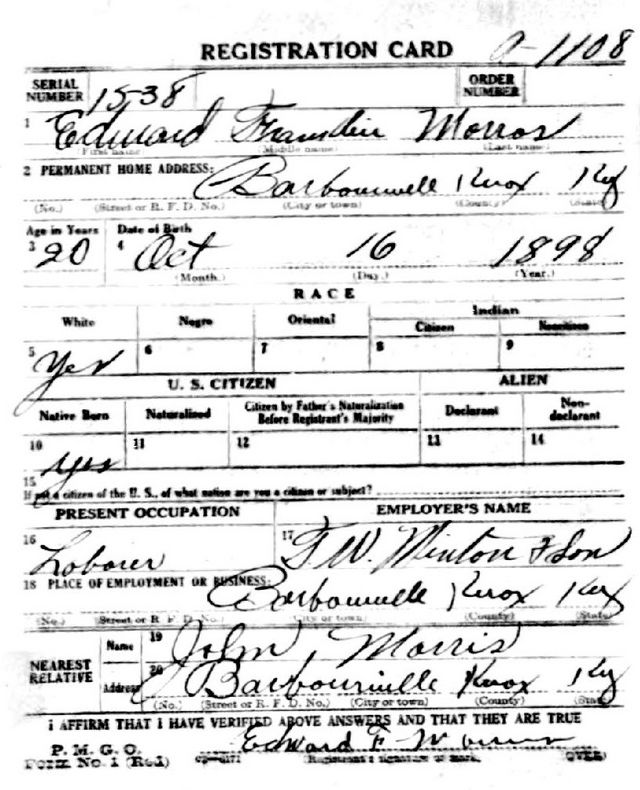 REGISTRATION CARD a-1108
SERIAL NUMBER 1538 ORDER NUMBER
1 Edward Franklin Morros
(First name) (Middle name) (Last name)
2 PERMANENT HOME ADDRESS: Barbourville Knox Ky
(No.) (Street or R. F. D. No.) (City or town) (County) (State)
Age in Years Date of Birth
3 20 4 Oct 16 1898
(Month.) (Day.) (Year.)
RACE
White Negro Oriental Indian
Citizen Noncitizen
5 Yes 6 7 8 9
U. S. CITIZEN ALIEN
Native Born Naturalized Citizen by Father's Naturalization Before Registrant's Majority Declarant Non-declarant
10 yes 11 12 13 14
15 If not a citizen of the U. S., of what nation are you a citizen or subject?
PRESENT OCCUPATION EMPLOYER'S NAME
16 Laborer 17 T. W. Minton & Son
18 PLACE OF EMPLOYMENT OR BUSINESS: Barbourville Knox Ky
(No.) (Street or R. F. D. No.) (City or town) (County) (State)
NEAREST RELATIVE Name 19 John Morris
Address 20 Barbourville Knox Ky
(No.) (Street or R. F. D. No.) (City or town) (County) (State)
I AFFIRM THAT I HAVE VERIFIED ABOVE ANSWERS AND THAT THEY ARE TRUE
P. M. G. O. Edward F
Form No. 1 (Red) (Registrant's signature or mark.) (OVER)